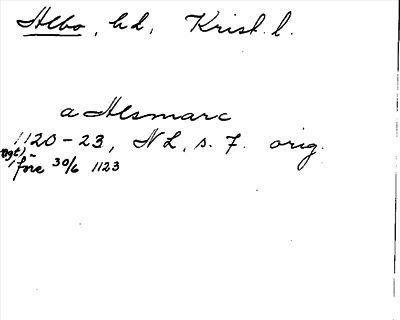 Hlbo, hd, Krist. l.
a Hlsmarc
1120-23, NL, s. 7. orig.
före 30/6 1123